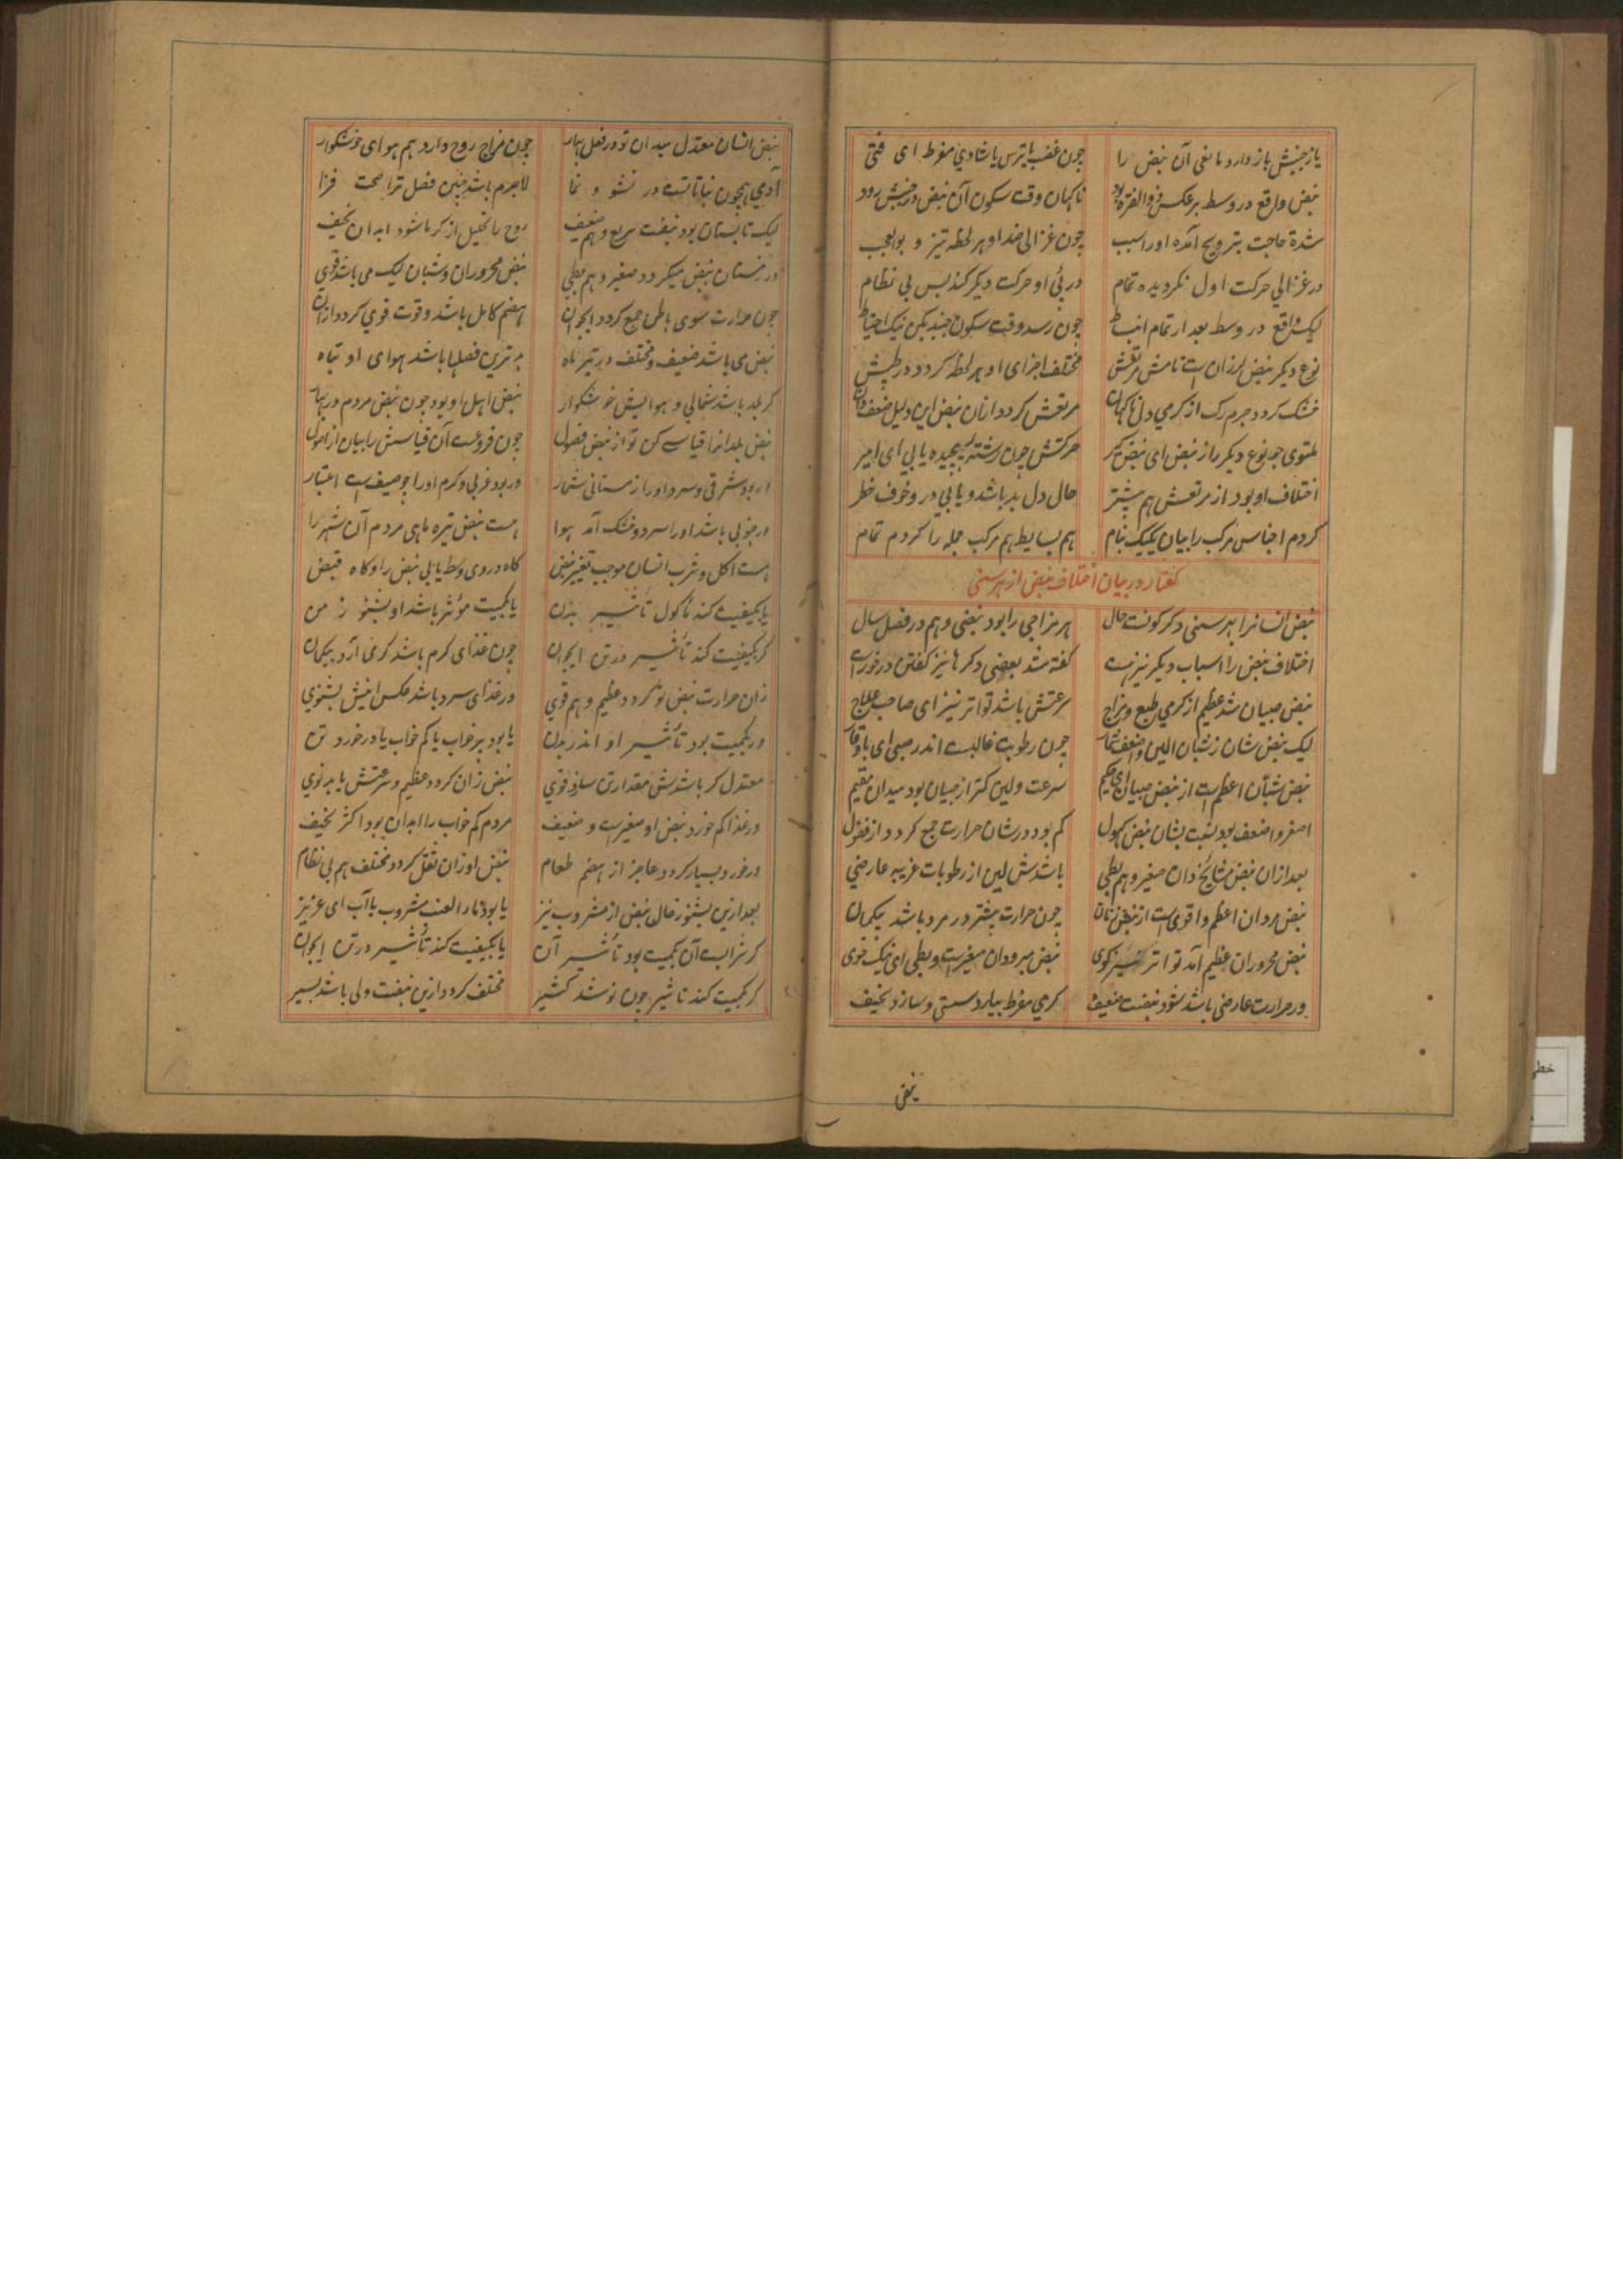 یا ز جنبش باز دارد مانعی آن نبض را چون غضب یا ترس یا شادی مفرط ای فتی
نبض واقع در وسط بر عکس ذو الفتره بود ناگهان وقت سکون آن نبض در جنبش رود
شدة حاجت بترویح آمده او را سبب چون غزالی ضد او هر لحظه تیز و بوالعجب
در غزالی حرکت اول نگردیده تمام در پئ او حرکت دیگر کند بس بی نظام
لیک واقع در وسط بعد از تمام انبساط چون رسد وقت سکون جنبد یکن نیک احتیاط
نوع دیگر نبض لرزان است نامش مرتعش مختلف اجزای او هر لحظه کردد در طپش
خشک کردد جرم رک از کرمی دل ناکهان مرتعش کردد ازان نبض این دلیل ضعف دان
ملتوی جو نوع دیگر را ز نبض ای نبض کیر حرکتش چون رشتهٔ پیچیده یابی ای امیر
اختلاف او بود از مرتعش هم بیشتر حال دل بد باشد و یابی درو خوف خطر
کردم اجناس مرکب را بیان یک یک بنام هم بسایط هم مرکب جمله را کردم تمام
کفتار در بیان اختلاف نبض از هر سنی
نبض انسانرا بهر سنی دکر کونست حال هر مزاجی را بود نبضی و هم در فصل سال
اختلاف نبض را اسباب دیکر نیز هست کفته شد بعضی دکرها نیز کفتن درخورست
نبض صبیان شد عظیم از کرمی طبع و مزاج سرعتش باشد تواتر نیز ای صاحب علاج
لیک نبض شان ز شبان الین و اضعف شمار چون رطوبت غالبست اندر صبی ای باوقار
نبض شبان اعظم است از نبض صبیان ای حکیم سرعت و لین کمتر از صبیان بود میدان مقیم
اصغر و اضعف بود نسبت بشان نبض کهول کم بود در شان حرارت جمع کردد از فضول
بعد ازان نبض مشایخ دان صغیر و هم بطی باشدش لین از رطوبات غریبه عارضی
نبض مردان اعظم و اقوی است از نبض زنان چون حرارت بیشتر در مرد باشد بیکمان
نبض محروران عظیم آمد تواتر نیز کوی نبض مبرودان صغیرست و بطی ای نیک خوی
ور حرارت عارضی باشد شود نبضت ضعیف کرمی مفرط بیارد سستی و سازد نحیف
نبض
نبض انسان معتدل میدان تو در فصل بهار چون مزاج روح دارد هم هوای خوشکوار
آدمی همچون نباتاتست در نشو و نما لاجرم باشد چنین فصل ترا صحت فزا
لیک تابستان بود نبضت سریع و هم ضعیف روح را تحلیل از کرما شود ابدان نحیف
در زمستان نبض میکردد صغیر و هم بطی نبض محروران و شبان لیک می باشد قوی
چون حرارت سوی باطن جمع کردد ایجوان هضم کامل باشد و قوت قوی کردد ازان
نبض می باشد ضعیف و مختلف در تیر ماه بدترین فصلها باشد هوای او تباه
کر بلد باشد شمالی و هوایش خوشکوار نبض اهل او بود چون نبض مردم در بهار
نبض بلدانرا قیاس کن تو از نبض فصول چون فروعست آن قیاسش را بیان از اصول
ور بود شرقی و سرد او را زمستانی شمار ور بود غربی و کرم او را چو صیف است اعتبار
ور جنوبی باشد او را سرد و خشک آمد هوا هست نبض تیره ماهی مردم آن شهر را
هست اکل و شرب انسان موجب تغییر نبض کاه در وی وسط یابی نبض را و کاه قبض
یا بکیفیت کند مأکول تأثیر بدن یا بکمیت مؤثر باشد او بشنو ز من
کر بکیفیت کند تأثیر در تن ایجوان چون غذای کرم باشد کرمی آرد بیکمان
زان حرارت نبض تو کردد عظیم و هم قوی ور غذای سرد باشد عکس اینش بشنوی
ور بکمیت بود تأثیر او اندر بدن یا بود پر خواب یا کم خواب یا درخورد تن
معتدل کر باشدش مقدار تن سازد قوی نبض زان کردد عظیم و سرعتش یابد نوی
ور غذا کم خورد نبض او صغیرست و ضعیف مردم کم خواب را ابدان بود اکثر نحیف
ور خورد بسیار کردد عاجز از هضم طعام نبض او زان ثقل کردد مختلف هم بی نظام
بعد ازین بشنو ز حال نبض از مشروب نیز یا بود ماء العنب مشروب یا آب ای عزیز
کر شرابست آن بکمیت بود تأثیر آن یا بکیفیت کند تأثیر در تن ایجوان
کر بکمیت کند تاثیر چون نوشد کثیر مختلف کردد ازین نبضت ولی باشد یسیر
خطی